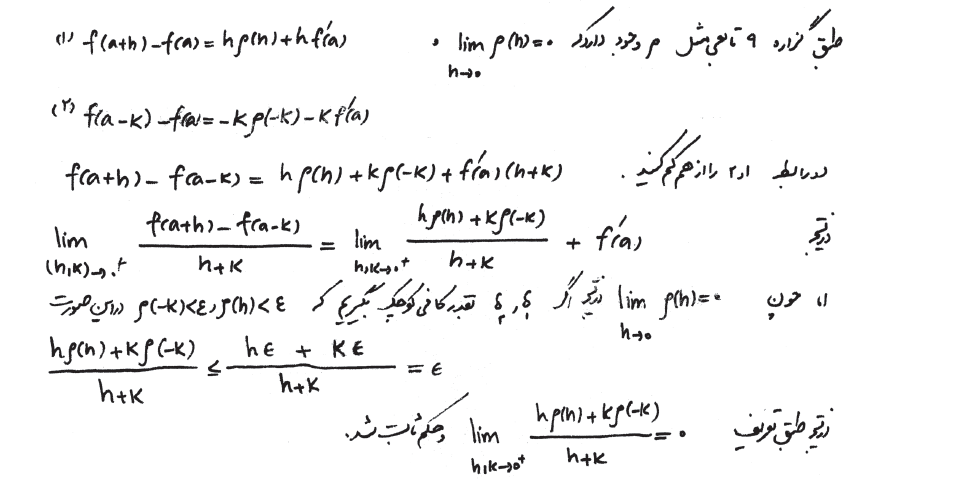 طبق گزاره ۹ تابعی مثل ρ وجود دارد که lim ρ(h)=۰ و (۱) f(a+h)-f(a)=hρ(h)+hf′(a)
h→۰
(۲) f(a-k)-f(a)=-kρ(-k)-kf′(a)
دو رابطه ۱و۲ را از هم کم کنید. f(a+h)-f(a-k)=hρ(h)+kρ(-k)+f′(a)(h+k)
درنتیجه lim (h,k)→۰⁺ (f(a+h)-f(a-k))/(h+k) = lim h,k→۰⁺ (hρ(h)+kρ(-k))/(h+k) + f′(a)
چون lim h→۰ ρ(h)=۰ درنتیجه اگر δ, δ بقدر کافی کوچک بگیریم که ρ(h)<ε و ρ(-k)<ε دراین صورت
(hρ(h)+kρ(-k))/(h+k) ≤ (hε + kε)/(h+k) = ε
درنتیجه طبق تعریف lim h,k→۰⁺ (hρ(h)+kρ(-k))/(h+k) = ۰ و حکم ثابت شد.